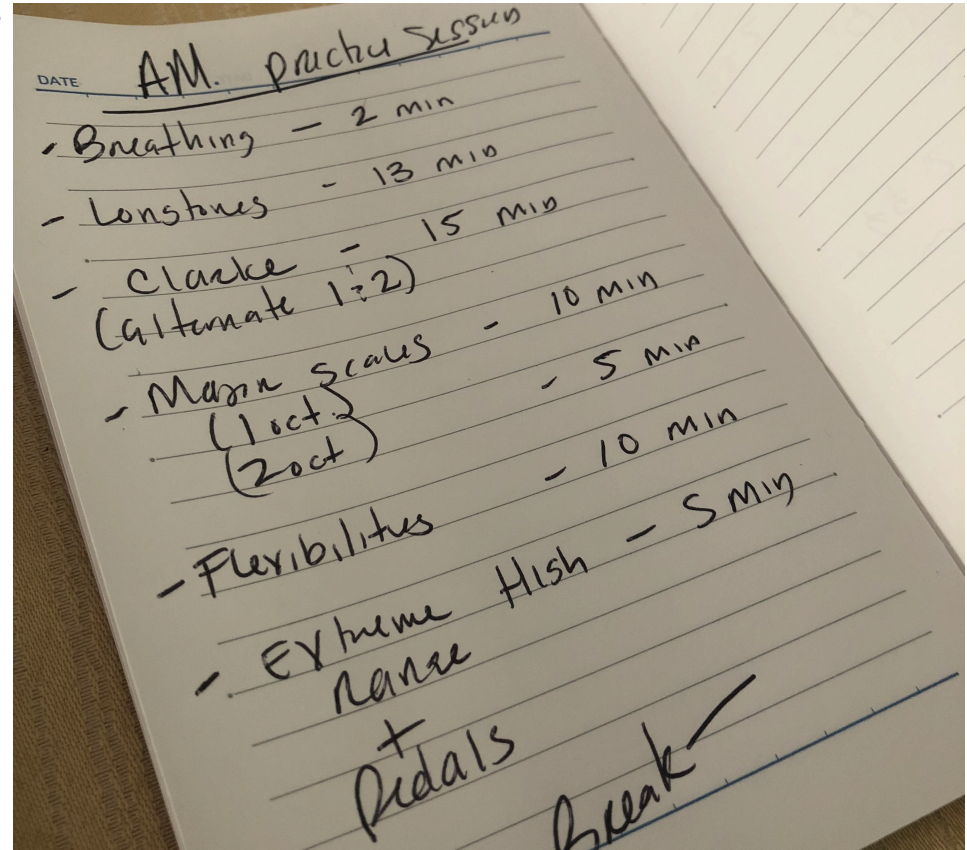 DATE
A.M. practice session
- Breathing - 2 min
- Longtones - 13 min
- Clarke - 15 min
(alternate 1 & 2)
- Major scales - 10 min
(1 oct.)
(2 oct) - 5 min
- Flexibilities - 10 min
- Extreme High - 5 min
range
+
Pedals
Break